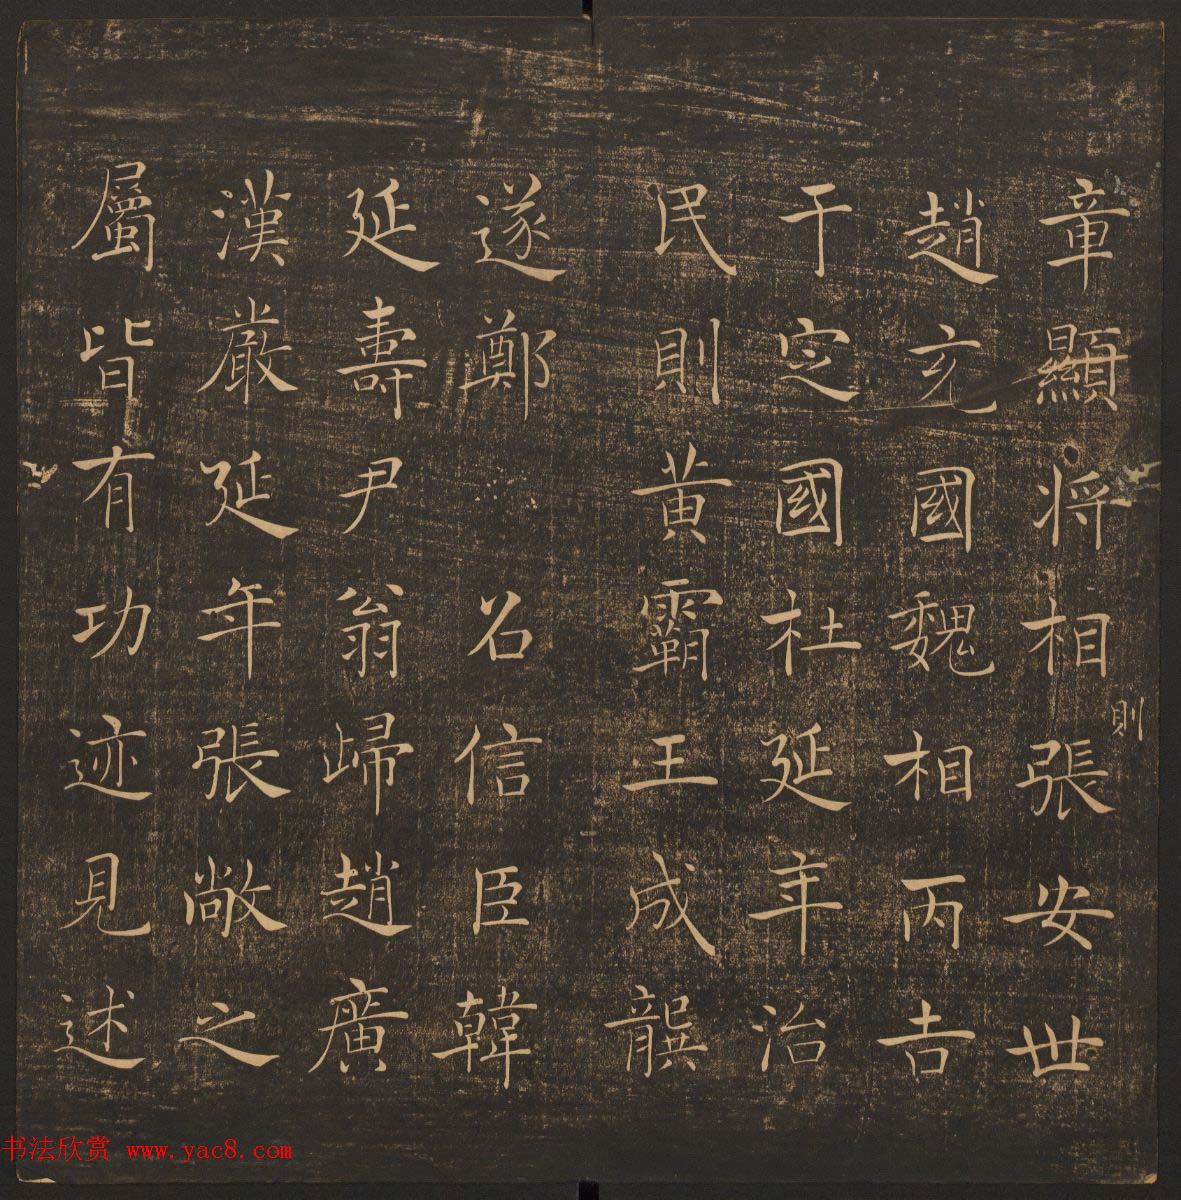 章顯将相張安世
則
趙充國魏相丙吉
于定國杜延年治
民則黄霸王成龔
遂鄭召信臣韓
延壽尹翁歸趙廣
漢嚴延年張敞之
屬皆有功迹見述
书法欣赏 www.yac8.com